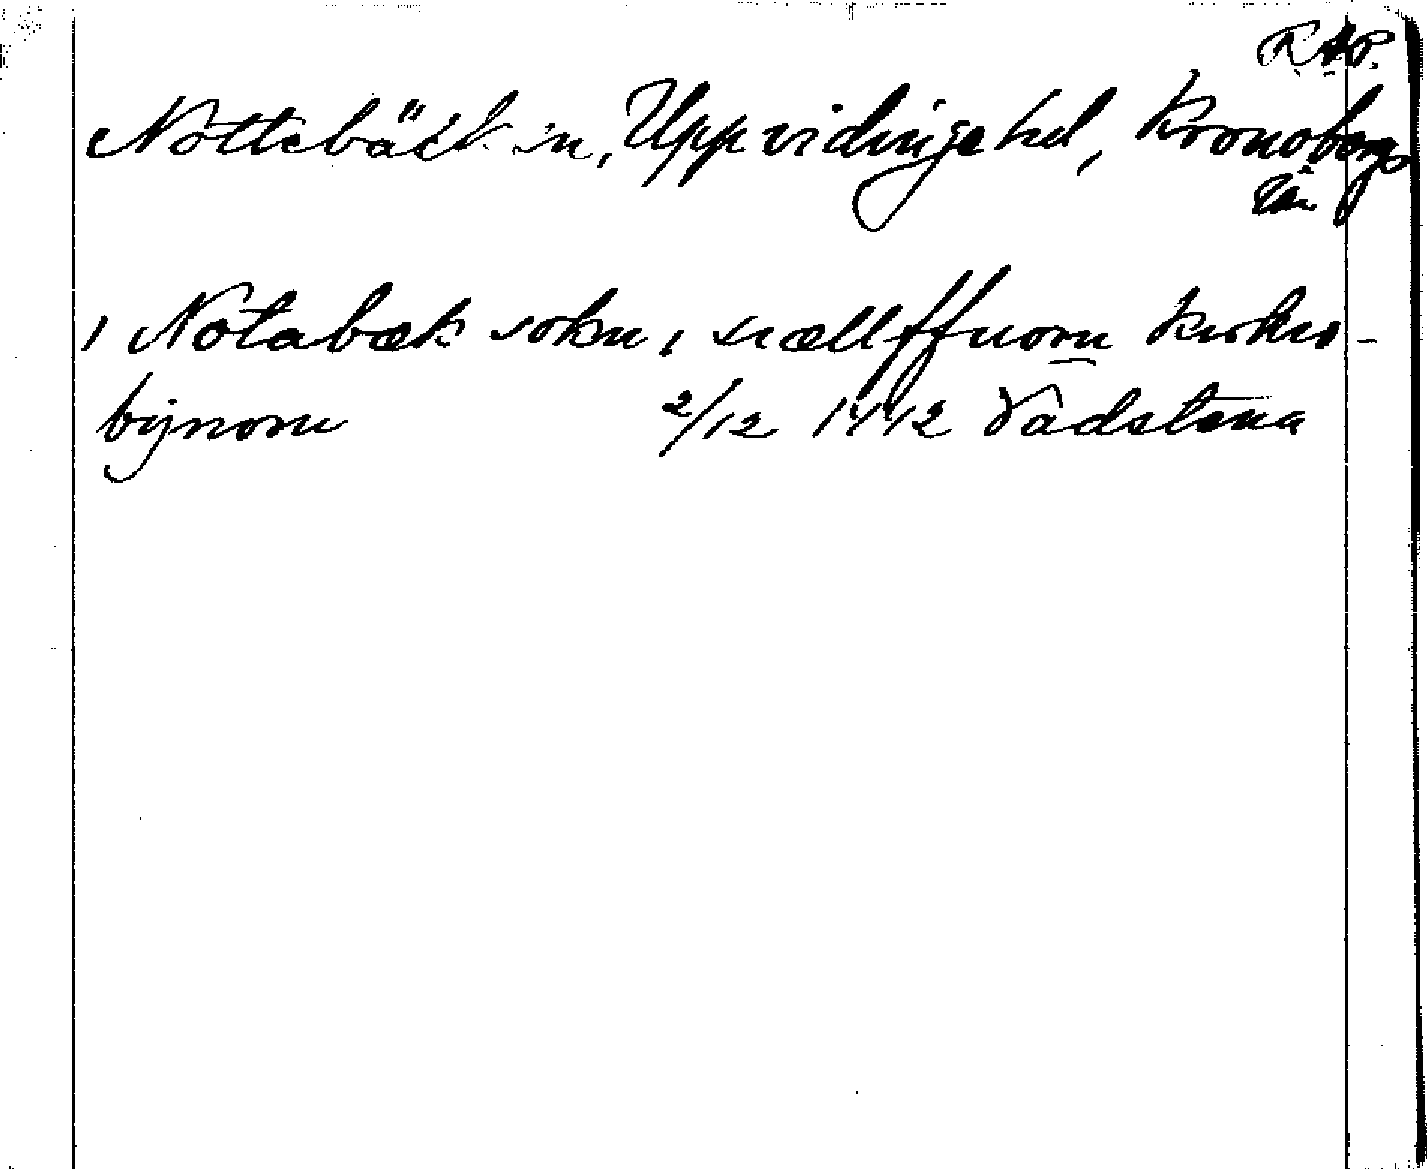 RAP.
Nottebäck sn, Uppvidinge hd, Kronobergs
län
i Notabæk sokn, i siælffuom kirkio-
bynom 2/12 1442 Vadstena